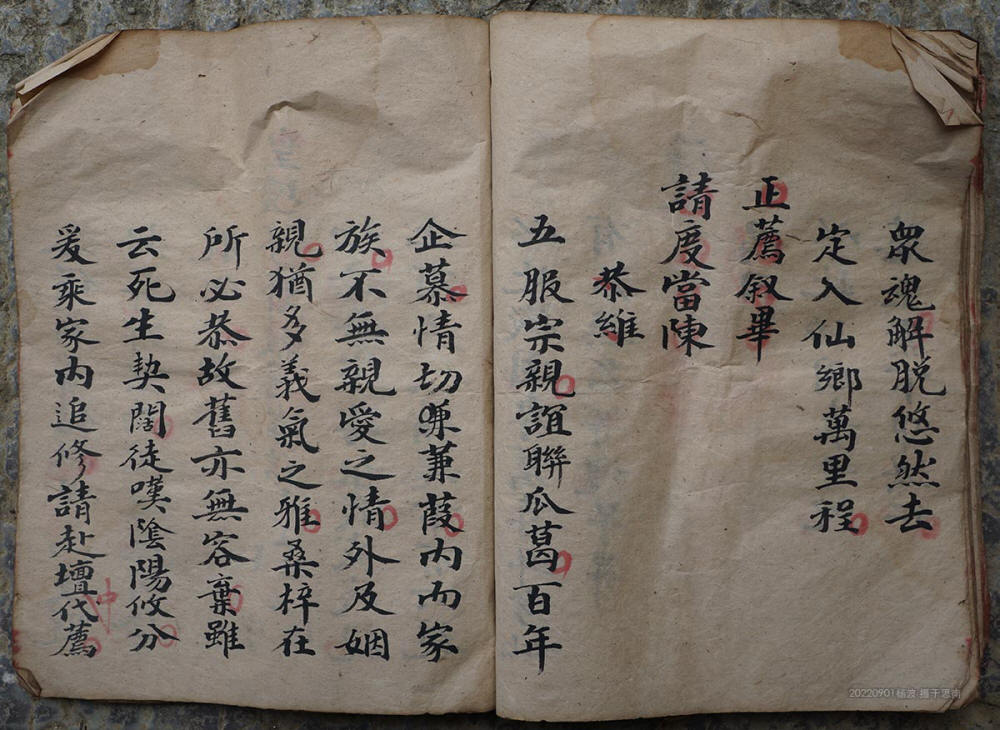 眾魂解脱悠然去
定入仙鄉萬里程
正薦叙畢
請度當陳
恭維
五服宗親誼聯瓜葛百年
企慕情切蒹葭内而家
族不無親愛之情外及姻
親猶多義氣之雅桑梓在
所必恭故舊亦無容棄雖
云死生契闊徒嘆陰陽攸分
爰乘家内追修請赴壇代薦
20220901杨波 摄于思南